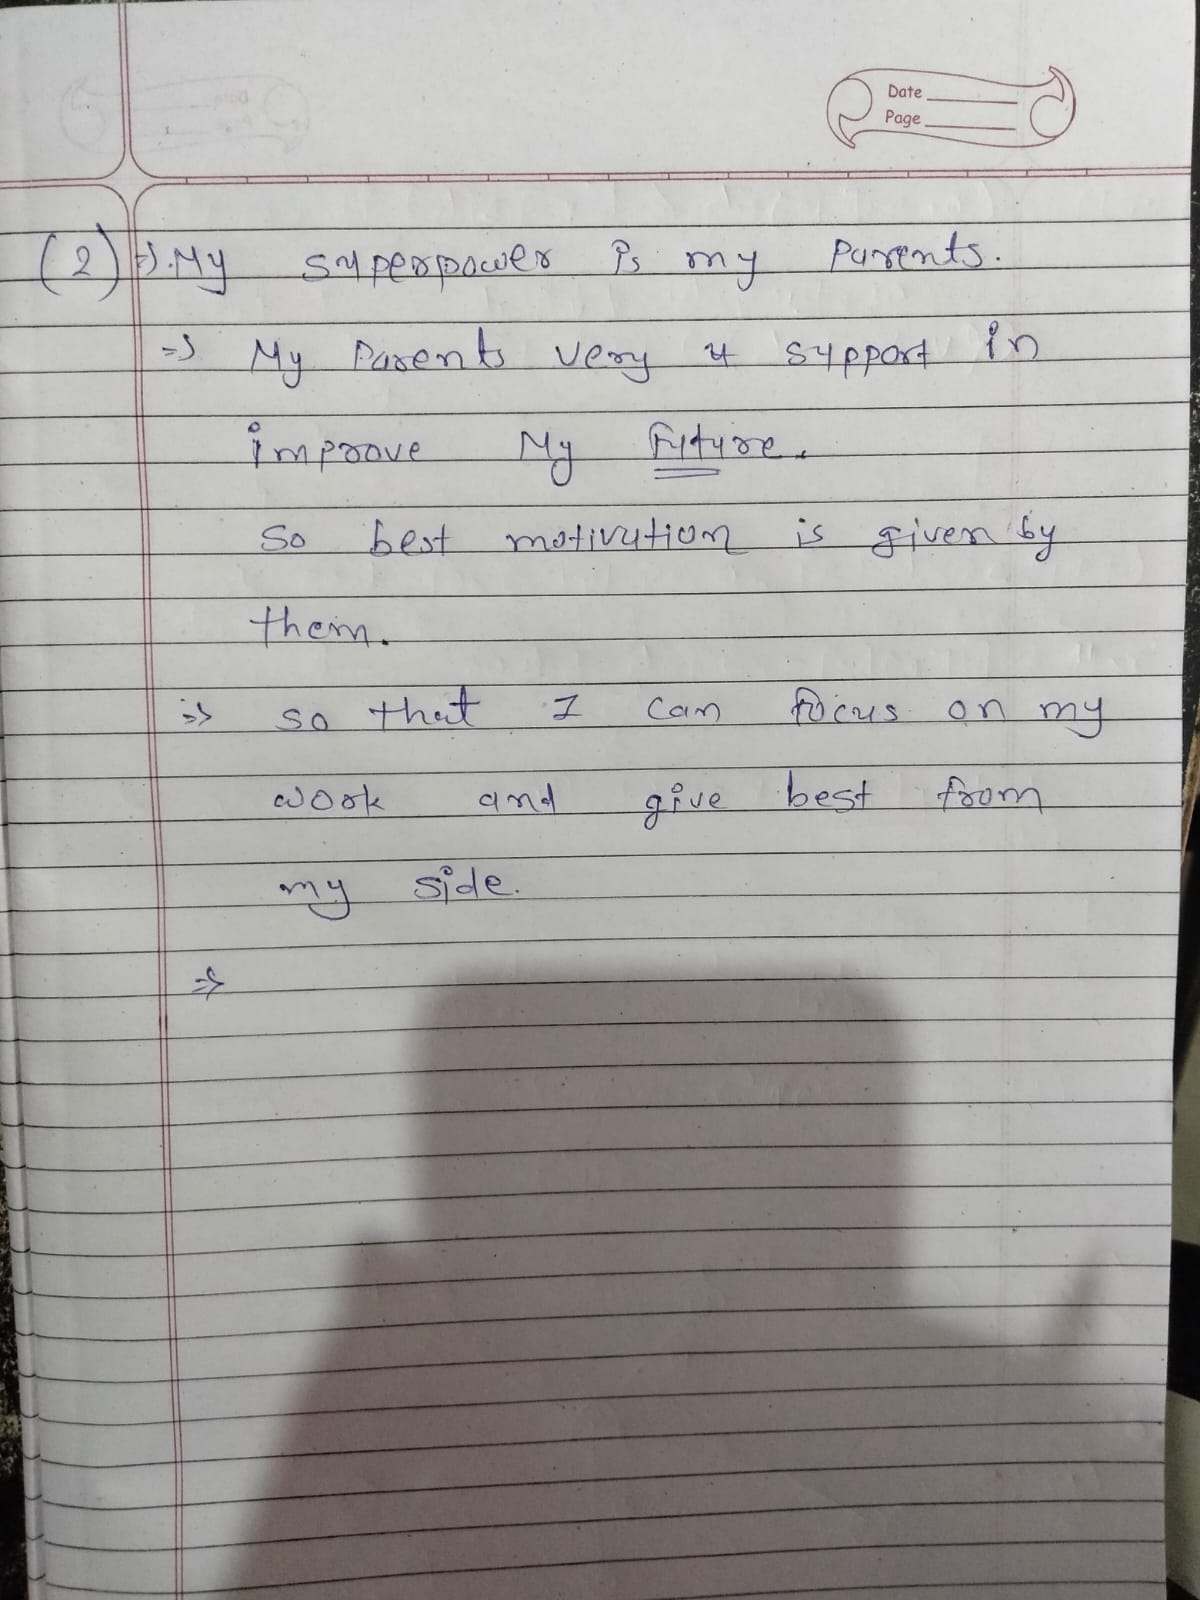 Date
Page
(2) => My superpower is my Parents.
=> My Parents very support in
improve My Future.
So best motivation is given by
them.
=> so that I can focus on my
work and give best from
my side.
=>